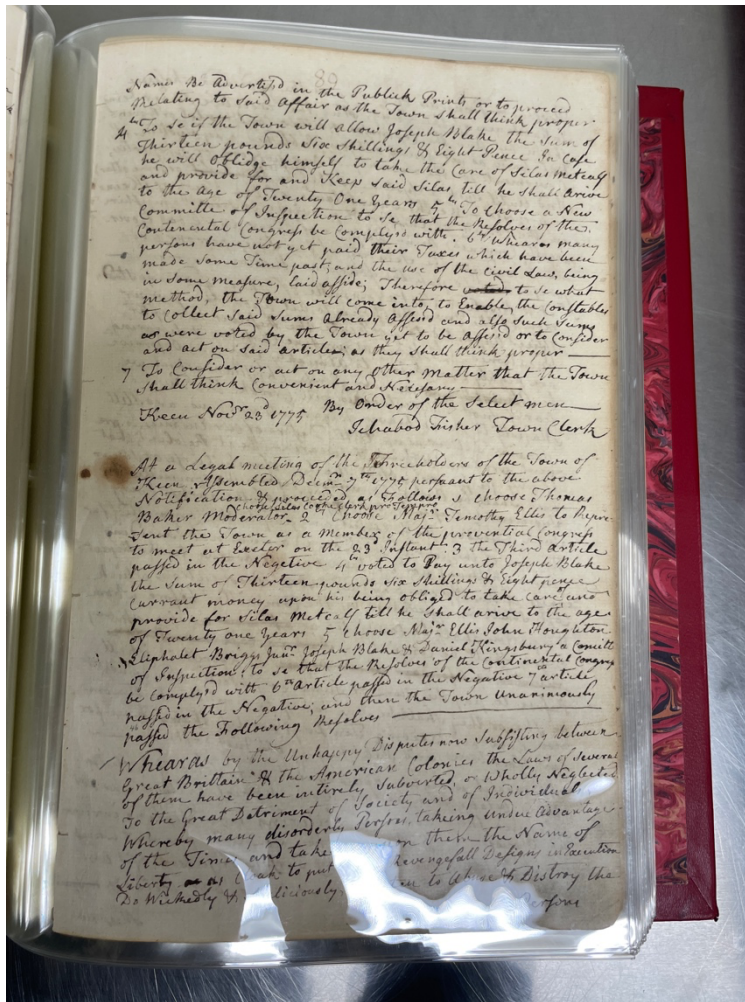 Names Be Advertisd in the Publick Prints or to proceed
Relating to Said Affair as the Town Shall think proper
4th To Se if the Town will allow Joseph Blake the Sum of
Thirteen pounds Six Shillings & Eight Pence In Case
he will Oblidge himself to take the Care of Silas Metcalf
and provide for and Keep Said Silas, till he Shall Arive
to the Age of Twenty One Years 5th To Choose a New
Committe of Inspection to Se that the Resolves of the
Contenental Congress be Complyd with. 6th Whearas many
persons have not yet paid their Taxes which have been
made Some Time past, and the use of the Civil Law, being
in Some measure, laid asside; Therefore to Se what
method, the Town will come into, to Enable the Constables
to Collect Said Sums Already Assessd and also Such Sums
as were voted by the Town yet to be Assessd or to Consider
and act on Said articles; as they Shall think proper
7 To Consider or act on any Other Matter that the Town
Shall think Convenient and Nessesary
Keen Novr 23d 1775 By Order of the Select men
Ichabod Fisher Town Clerk
At a Legal meeting of the Freeholders of the Town of
Keen Assembled Decemr 7th 1775 persuant to the above
Notification & proceeded as Follows 1 Choose Thomas
choose Silas Cooke Clerk pro Tempore
Baker Moderator 2ly Choose Majr Timothy Ellis to Repre-
sent the Town as a Member of the provential Congress
to meet at Exeter on the 23d Instant 3 the Third article
passed in the Negetive 4th voted to Pay unto Joseph Blake
the Sum of Thirteen pounds Six Shillings & Eight pence
Currant money upon his being obliged to take Care and
provide for Silas Metcalf till he Shall arive to the age
of Twenty one Years 5 Choose Majr Ellis John Houghton
Eliphalet Briggs Junr Joseph Blake & Daniel Kingsbury a Comitt
of Inspection; to Se that the Resolves of the Continental Congress
be Complysd with 6th Article passed in the Negative 7th article
passed in the Negative; and then the Town Unanimously
passed the Following Resolves
Wheards by the Unhappy Disputes now Subsisting between
Great Brittain & the American Colonies the Laws of Several
of them have been intirely Subverted, or Wholly Neglected
To the Great Detriment of Society and of Individual
Whereby many disorderly Persons, taking undue Advantage
of the Times and take on them the Name of
Liberty as a to put Revengefull Designs in Execution
Do Wickedly & to Abuse & Distroy the